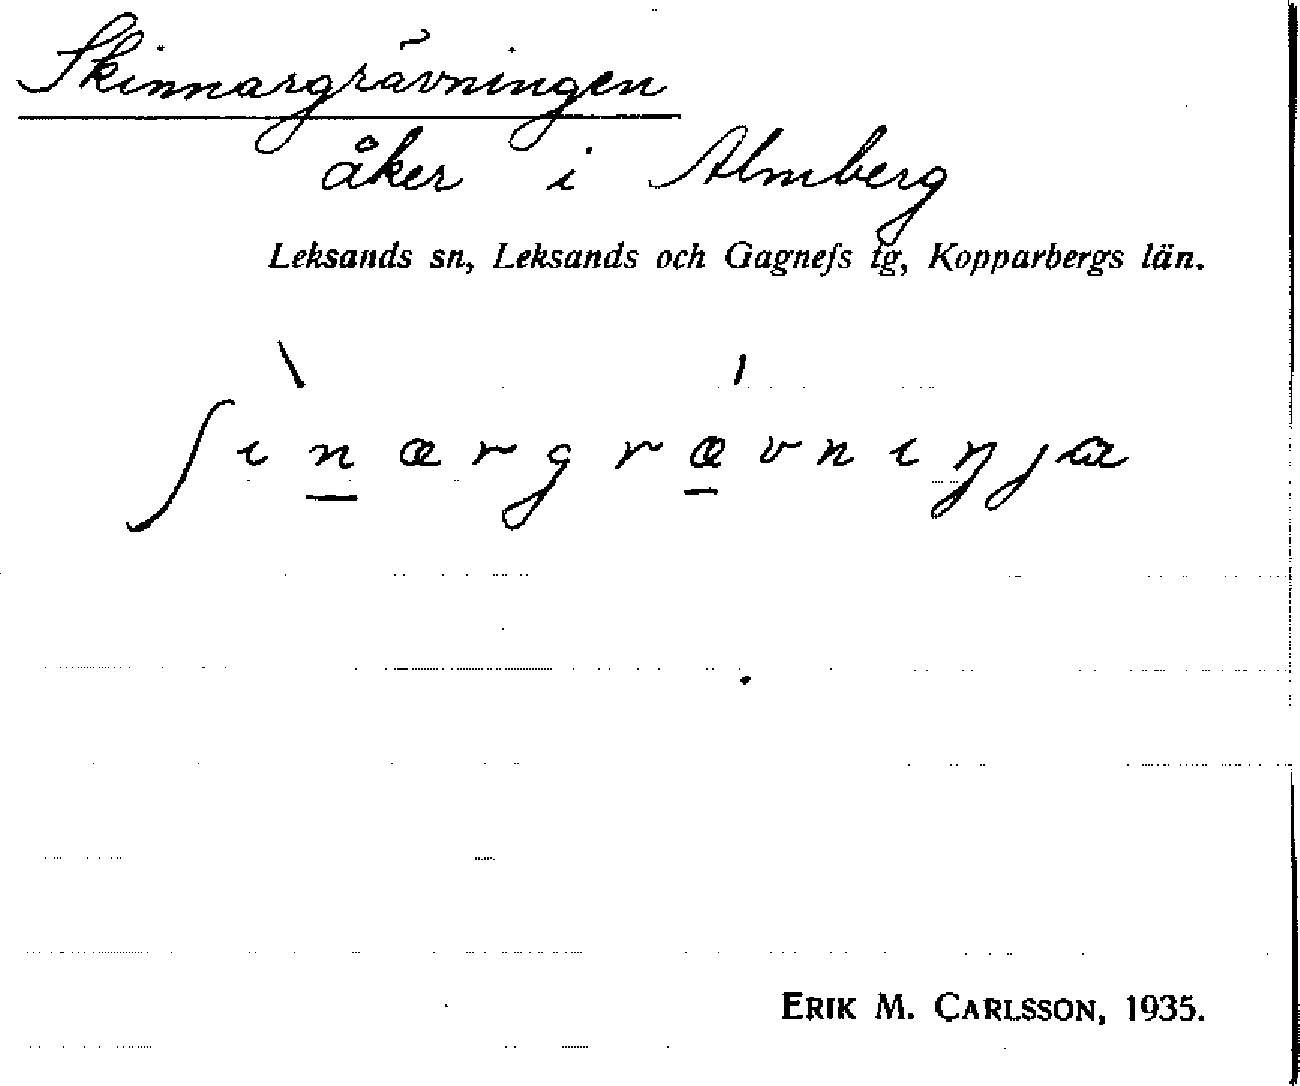 Skinnargrävningen
åker i Almberg
Leksands sn, Leksands och Gagnefs tg, Kopparbergs län.
ʃìn̲ærgrǽ̲vniŋja
ERIK M. CARLSSON, 1935.